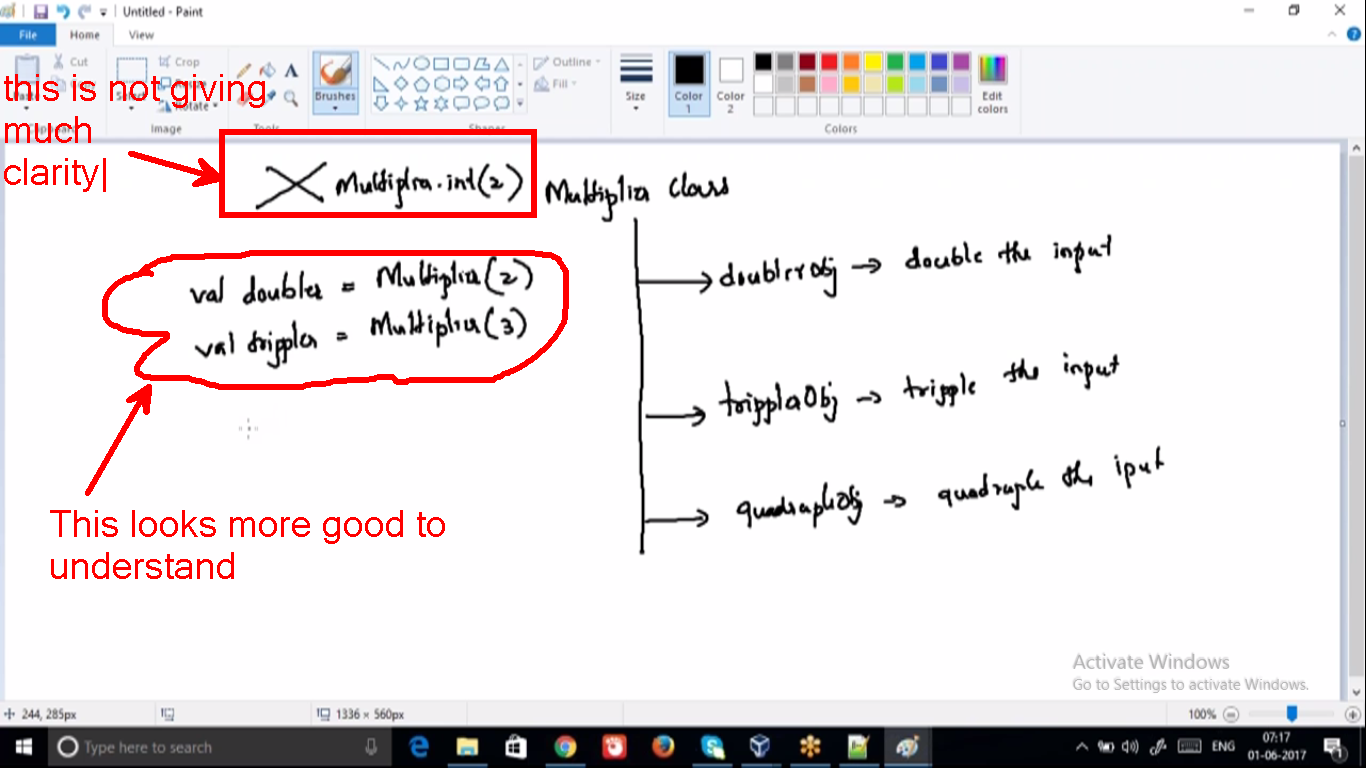 Untitled - Paint
File Home View
Cut
Crop
Rotate
Image
Tools
Brushes
Shapes
Outline
Fill
Size
Color 1
Color 2
Edit colors
Colors
this is not giving
much
clarity
Multiplier.int(2)
Multiplier Class
val doubler = Multiplier(2)
val trippler = Multiplier(3)
This looks more good to
understand
doublerObj → double the input
tripplerObj → tripple the input
quadrapleObj → quadraple the iput
Activate Windows
Go to Settings to activate Windows.
244, 285px
1336 × 560px
100%
Type here to search
ENG
07:17
01-06-2017